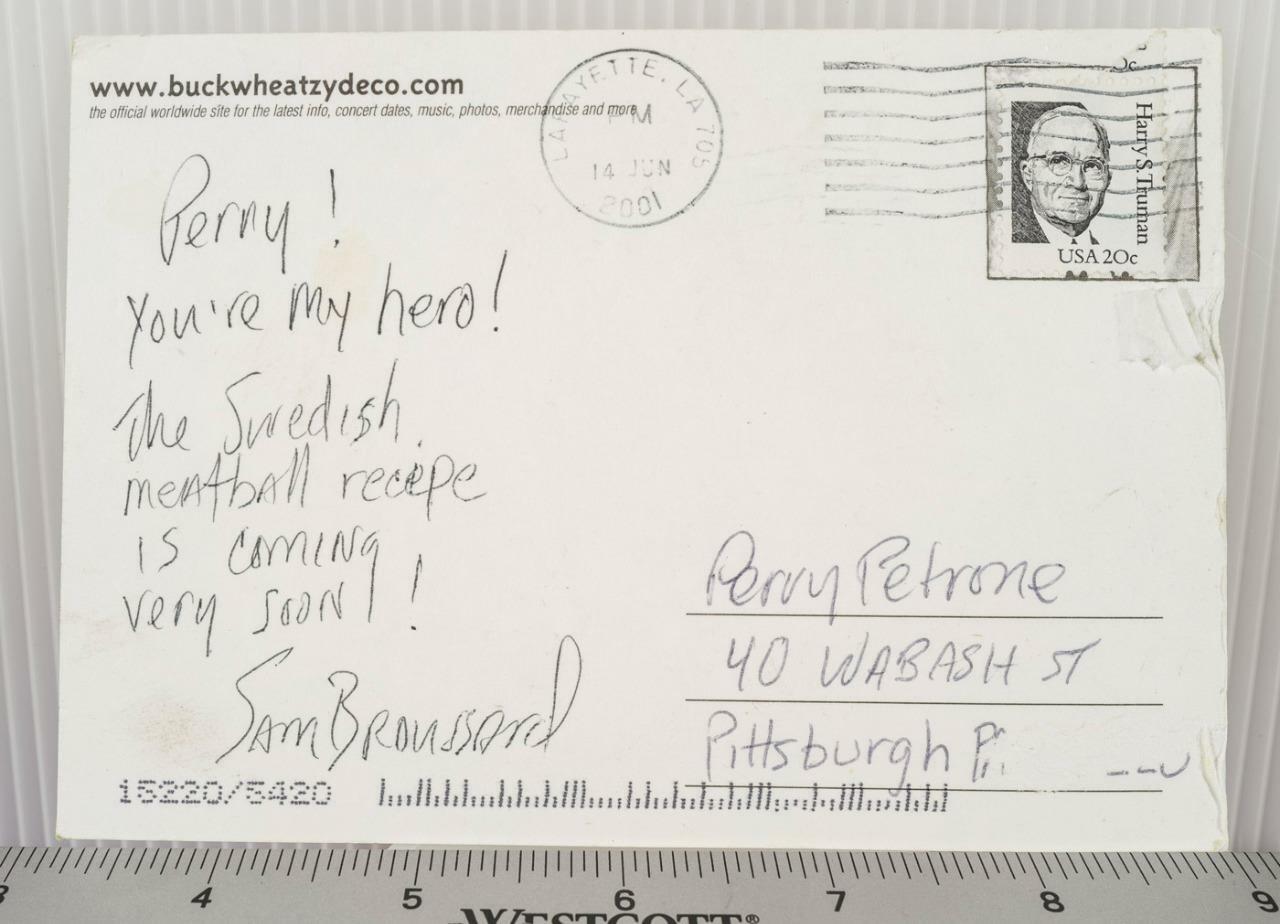 www.buckwheatzydeco.com
the official worldwide site for the latest info, concert dates, music, photos, merchandise and more.
LAFAYETTE, LA 705
PM
14 JUN
2001
Harry S. Truman
USA 20c
Perry!
You're my hero!
The Swedish
meatball recepe
is coming
very soon!
Sam Broussard
Perry Petrone
40 WABASH ST
Pittsburgh
15220/5420
3 4 5 6 7 8 9
WESTCOTT®